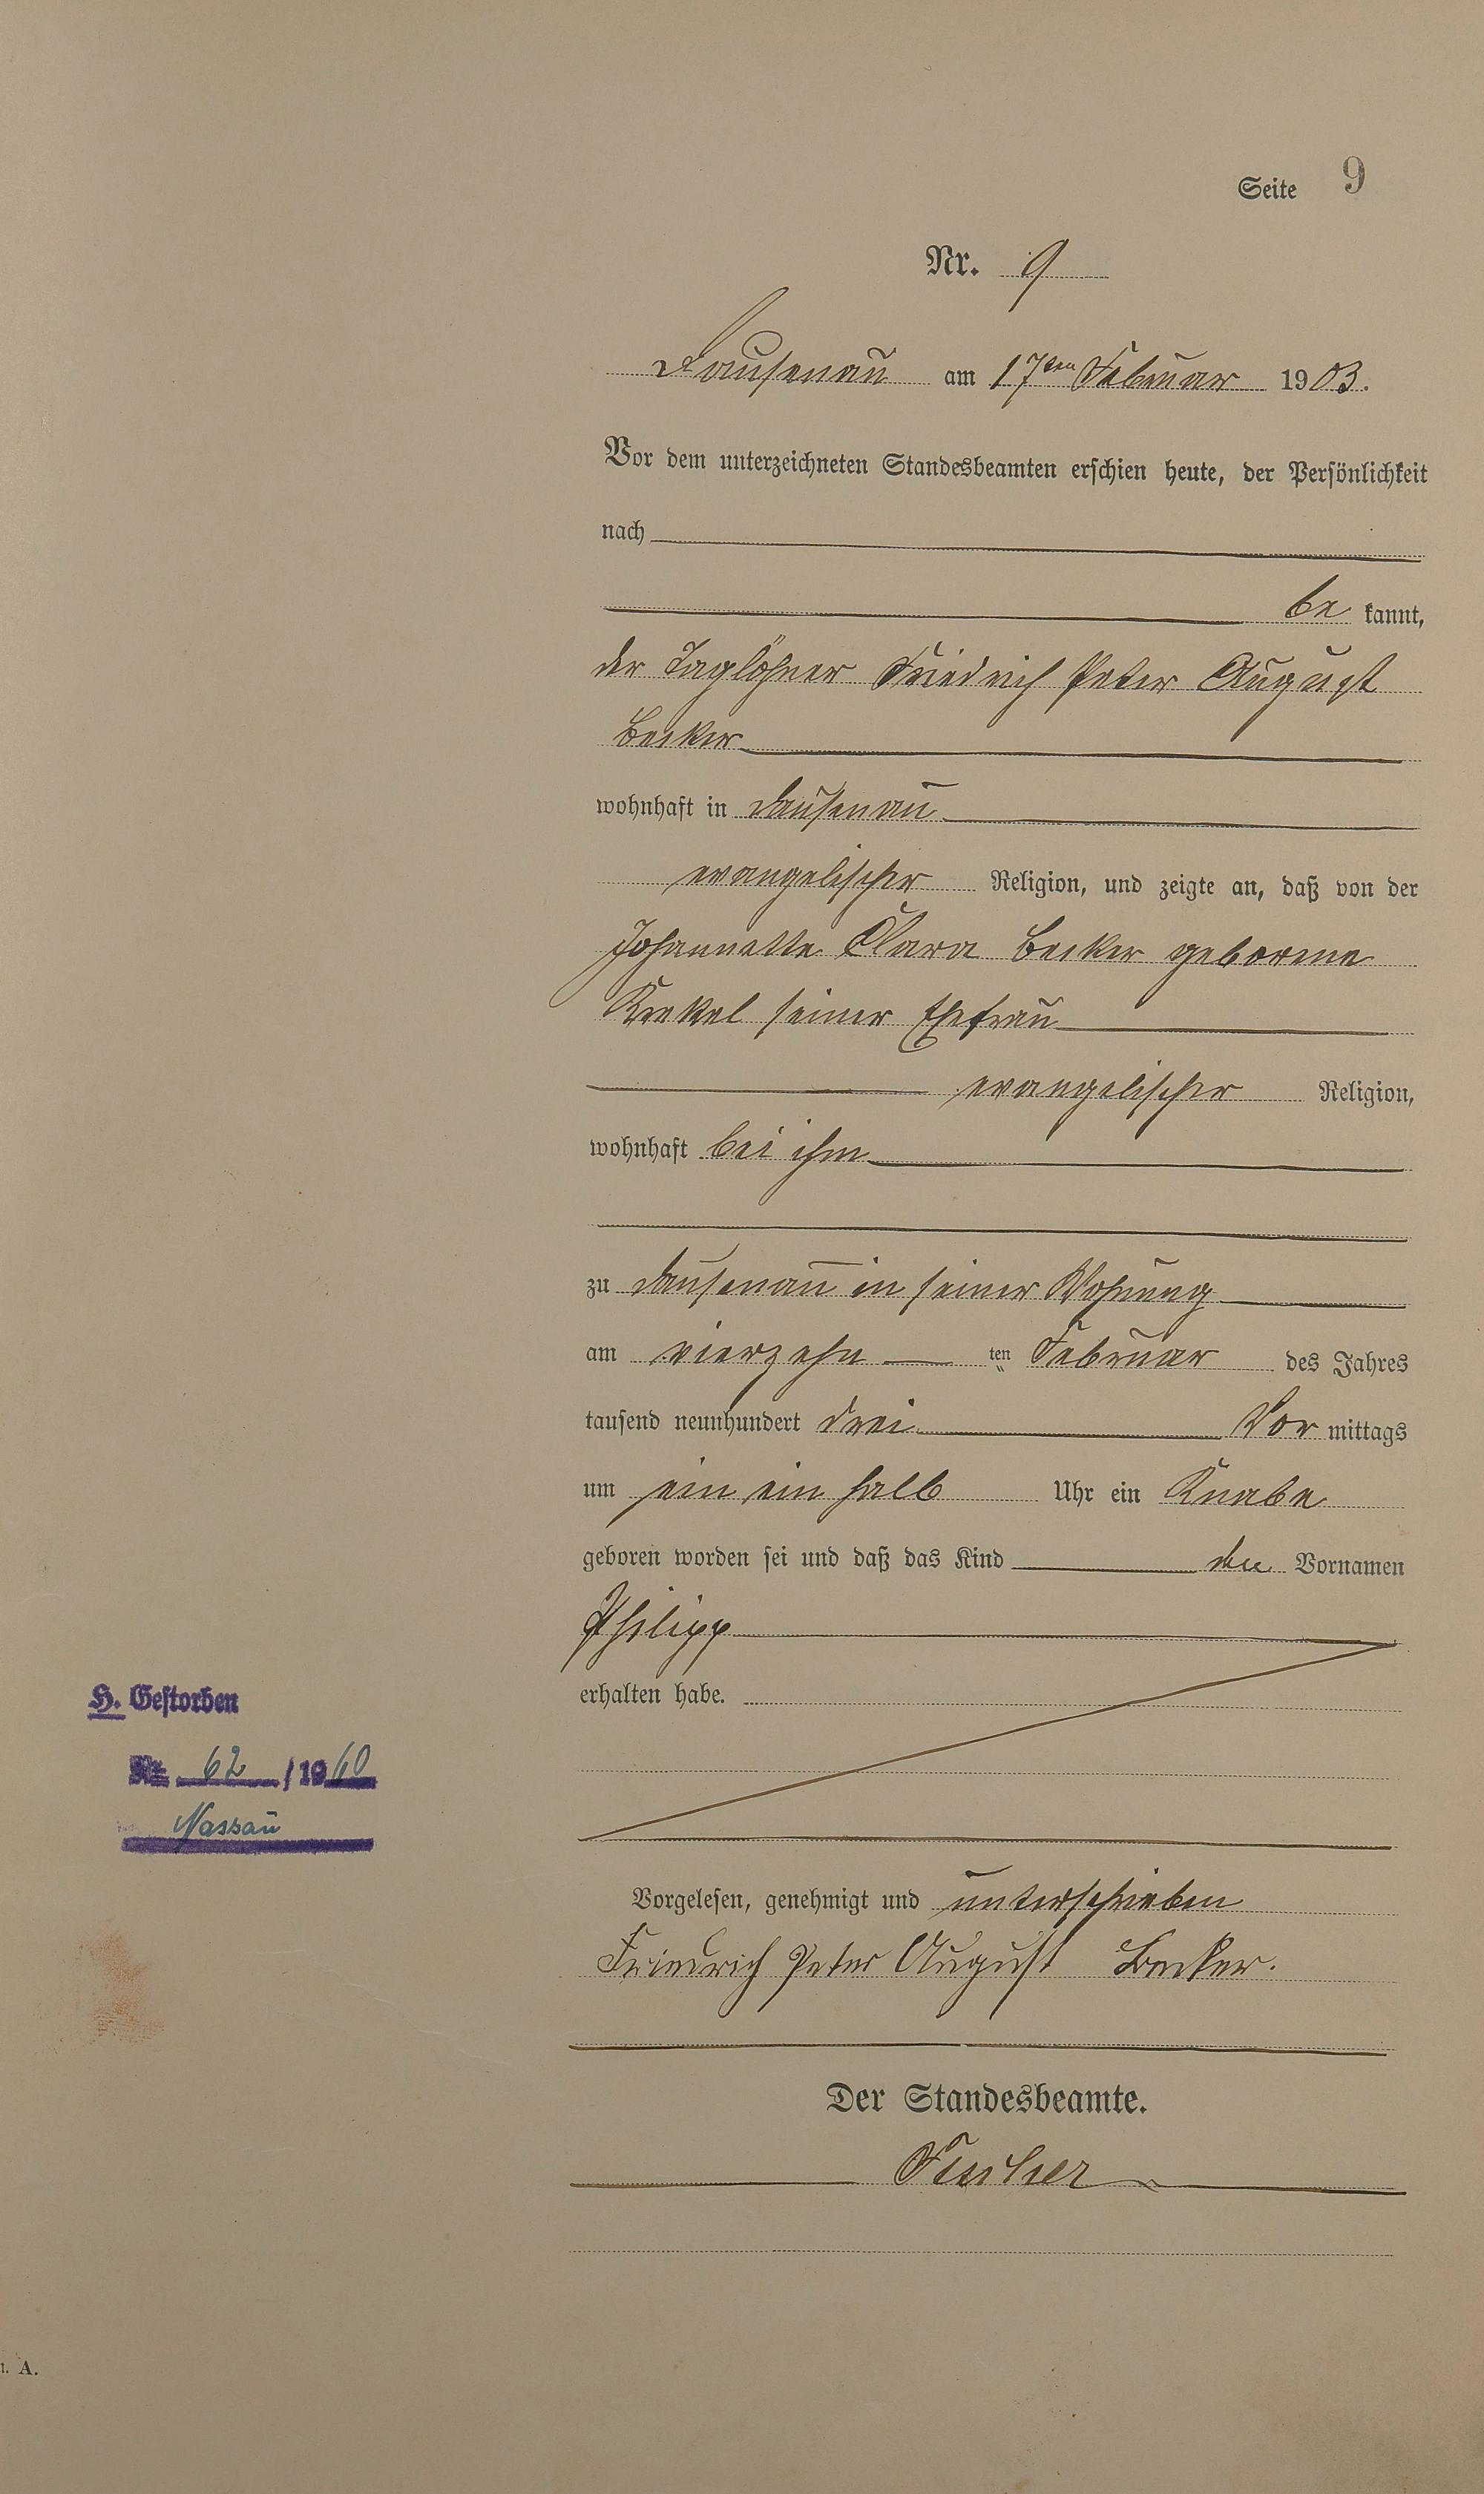 Seite 9
Nr. 9
Dausenau am 17ten Februar 1903.
Vor dem unterzeichneten Standesbeamten erschien heute, der Persönlichkeit
nach
be kannt,
der Taglöhner Friedrich Peter August
Becker
wohnhaft in Dausenau
evangelischer Religion, und zeigte an, daß von der
Johannette Clara Becker geborene
Krekel seiner Ehefrau
evangelischer Religion,
wohnhaft bei ihm
zu Dausenau in seiner Wohnung
am vierzehn ten Februar des Jahres
tausend neunhundert drei Vor mittags
um ein ein halb Uhr ein Knabe
geboren worden sei und daß das Kind den Vornamen
Philipp
erhalten habe.
H. Gestorben
Nr. 62 / 1960
Nassau
Vorgelesen, genehmigt und unterschrieben
Friedrich Peter August Becker.
Der Standesbeamte.
Fischer
A.